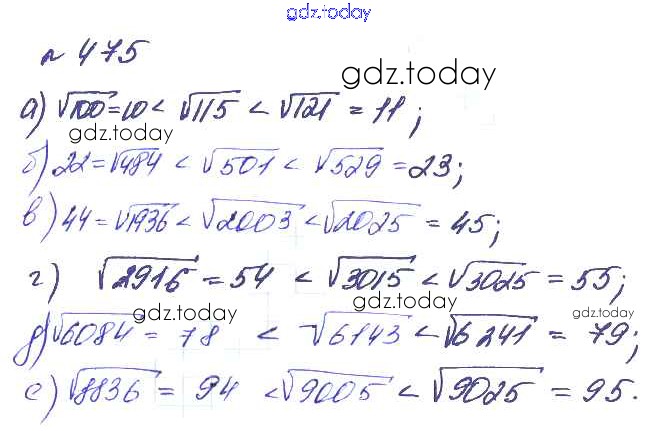 gdz.today
№ 475
gdz.today
а) √100 = 10 < √115 < √121 = 11;
gdz.today
б) 22 = √484 < √501 < √529 = 23;
в) 44 = √1936 < √2003 < √2025 = 45;
г) √2916 = 54 < √3015 < √3025 = 55;
gdz.today gdz.today gdz.today
д) √6084 = 78 < √6143 < √6241 = 79;
е) √8836 = 94 < √9005 < √9025 = 95.